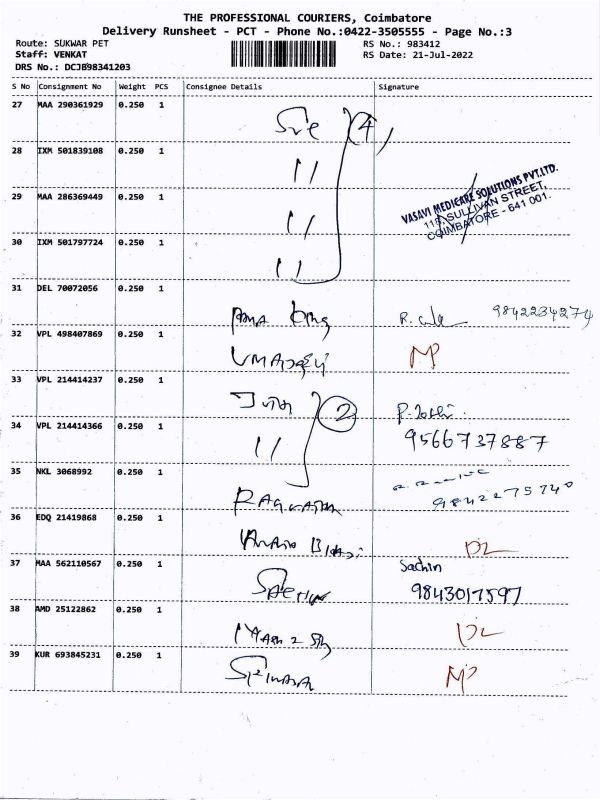 THE PROFESSIONAL COURIERS, Coimbatore
Delivery Runsheet - PCT - Phone No.:0422-3505555 - Page No.:3
Route: SUKWAR PET
Staff: VENKAT
DRS No.: DCJB98341203
RS No.: 983412
RS Date: 21-Jul-2022
S No Consignment No Weight PCS Consignee Details Signature
27 MAA 290361929 0.250 1 (4)
28 IXM 501839108 0.250 1 11
29 MAA 286369449 0.250 1 11
VASAVI MEDICARE SOLUTIONS PVT.LTD.
SULLIVAN STREET,
COIMBATORE - 641 001.
30 IXM 501797724 0.250 1 11
31 DEL 70072056 0.250 1 9842234274
32 VPL 498407869 0.250 1 MP
33 VPL 214414237 0.250 1 2
34 VPL 214414366 0.250 1 11 9566737887
35 NKL 3068992 0.250 1 9842275740
36 EDQ 21419868 0.250 1 DL
37 MAA 562110567 0.250 1 Sachin
9843017597
38 AMD 25122862 0.250 1 DL
39 KUR 693845231 0.250 1 MP